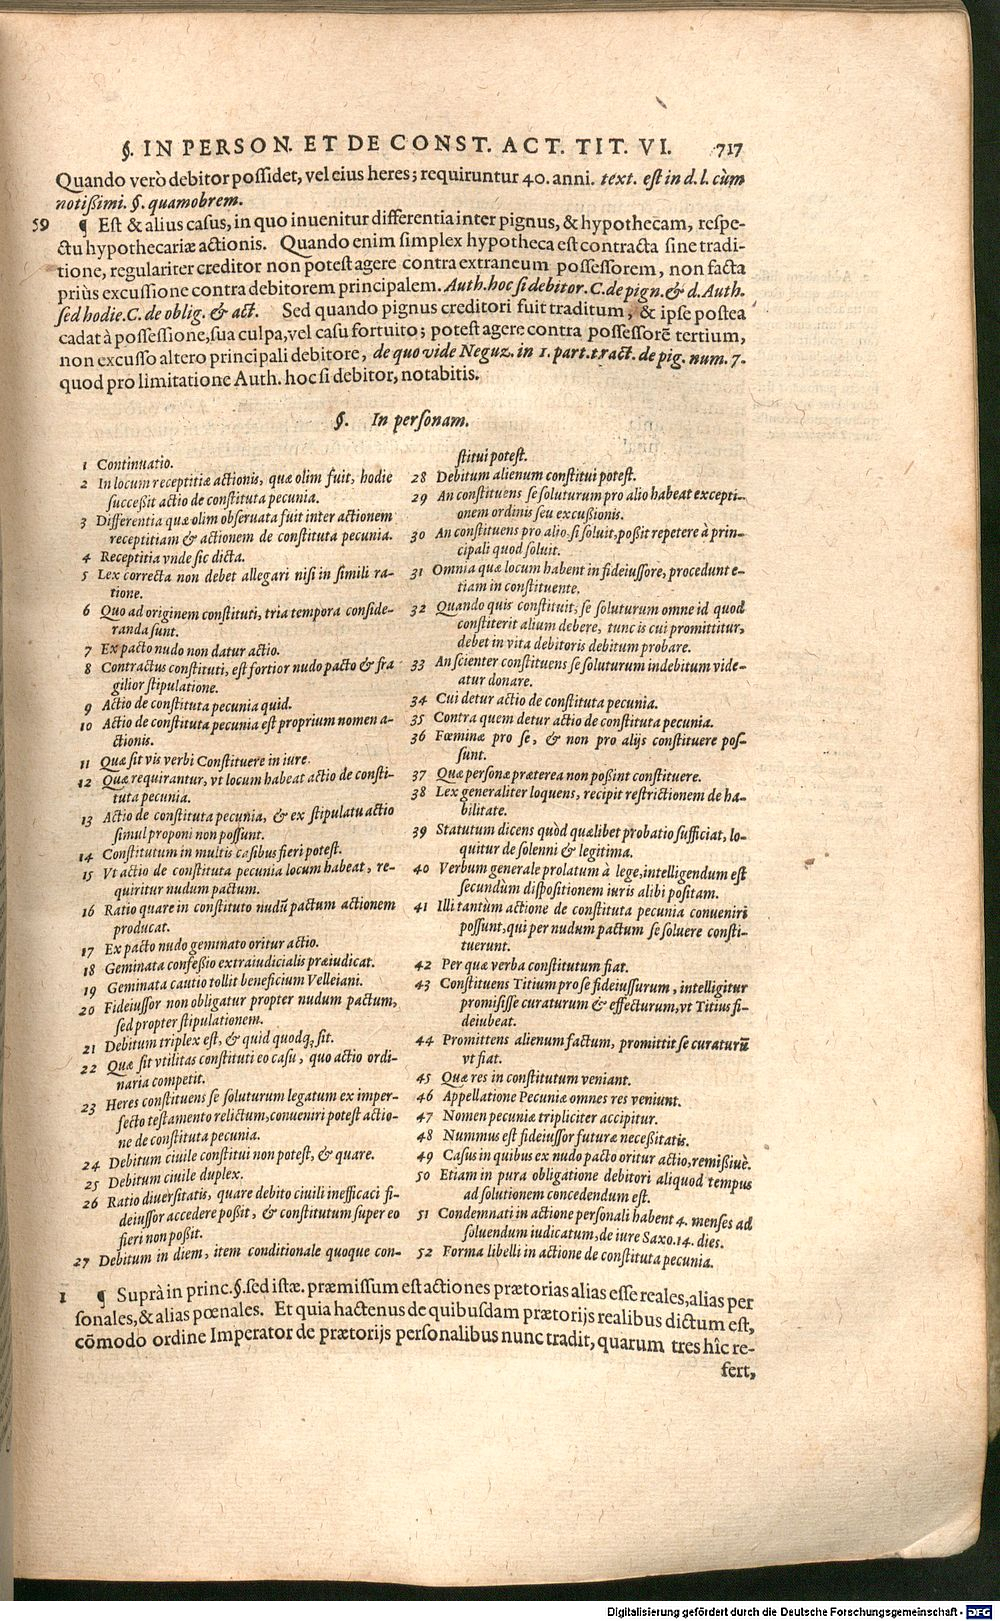 §. IN PERSON. ET DE CONST. ACT. TIT. VI. 717
Quando verò debitor possidet, vel eius heres; requiruntur 40. anni. text. est in d. l. cùm
notißimi. §. quamobrem.
59 ¶ Est & alius casus, in quo inuenitur differentia inter pignus, & hypothecam, respe-
ctu hypothecariæ actionis. Quando enim simplex hypotheca est contracta sine tradi-
tione, regulariter creditor non potest agere contra extraneum possessorem, non facta
priùs excussione contra debitorem principalem. Auth. hoc si debitor. C. de pign. & d. Auth.
sed hodie. C. de oblig. & act. Sed quando pignus creditori fuit traditum, & ipse postea
cadat à possessione, sua culpa, vel casu fortuito; potest agere contra possessorẽ tertium,
non excusso altero principali debitore, de quo vide Neguz. in 1. part. tract. de pig. num. 7.
quod pro limitatione Auth. hoc si debitor, notabitis.
§. In personam.
1 Continuatio.
2 In locum receptitiæ actionis, quæ olim fuit, hodie
succeßit actio de constituta pecunia.
3 Differentia quæ olim obseruata fuit inter actionem
receptitiam & actionem de constituta pecunia.
4 Receptitia vnde sic dicta.
5 Lex correcta non debet allegari nisi in simili ra-
tione.
6 Quo ad originem constituti, tria tempora conside-
randa sunt.
7 Ex pacto nudo non datur actio.
8 Contractus constituti, est fortior nudo pacto & fra
gilior stipulatione.
9 Actio de constituta pecunia quid.
10 Actio de constituta pecunia est proprium nomen a-
ctionis.
11 Quæ sit vis verbi Constituere in iure.
12 Quæ requirantur, vt locum habeat actio de consti-
tuta pecunia.
13 Actio de constituta pecunia, & ex stipulatu actio
simul proponi non possunt.
14 Constitutum in multis casibus fieri potest.
15 Vt actio de constituta pecunia locum habeat, re-
quiritur nudum pactum.
16 Ratio quare in constituto nudũ pactum actionem
producat.
17 Ex pacto nudo geminato oritur actio.
18 Geminata confeßio extraiudicialis præiudicat.
19 Geminata cautio tollit beneficium Velleiani.
20 Fideiussor non obligatur propter nudum pactum,
sed propter stipulationem.
21 Debitum triplex est, & quid quodq; sit.
22 Quæ sit vtilitas constituti eo casu, quo actio ordi-
naria competit.
23 Heres constituens se soluturum legatum ex imper-
fecto testamento relictum, conueniri potest actio-
ne de constituta pecunia.
24 Debitum ciuile constitui non potest, & quare.
25 Debitum ciuile duplex.
26 Ratio diuersitatis, quare debito ciuili inefficaci fi-
deiussor accedere poßit, & constitutum super eo
fieri non poßit.
27 Debitum in diem, item conditionale quoque con-
stitui potest.
28 Debitum alienum constitui potest.
29 An constituens se soluturum pro alio habeat excepti-
onem ordinis seu excußionis.
30 An constituens pro alio, si soluit, poßit repetere à prin-
cipali quod soluit.
31 Omnia quæ locum habent in fideiussore, procedunt e-
tiam in constituente.
32 Quando quis constituit, se soluturum omne id quod
constiterit alium debere, tunc is cui promittitur,
debet in vita debitoris debitum probare.
33 An scienter constituens se soluturum indebitum vide-
atur donare.
34 Cui detur actio de constituta pecunia.
35 Contra quem detur actio de constituta pecunia.
36 Fœminæ pro se, & non pro alijs constituere pos-
sunt.
37 Quæ personæ præterea non poßint constituere.
38 Lex generaliter loquens, recipit restrictionem de ha-
bilitate.
39 Statutum dicens quòd quælibet probatio sufficiat, lo-
quitur de solenni & legitima.
40 Verbum generale prolatum à lege, intelligendum est
secundùm dispositionem iuris alibi positam.
41 Illi tantùm actione de constituta pecunia conueniri
possunt, qui per nudum pactum se soluere consti-
tuerunt.
42 Per quæ verba constitutum fiat.
43 Constituens Titium pro se fideiussurum, intelligitur
promisisse curaturum & effecturum, vt Titius fi-
deiubeat.
44 Promittens alienum factum, promittit se curaturũ
vt fiat.
45 Quæ res in constitutum veniant.
46 Appellatione Pecuniæ omnes res veniunt.
47 Nomen pecuniæ tripliciter accipitur.
48 Nummus est fideiussor futuræ neceßitatis.
49 Casus in quibus ex nudo pacto oritur actio, remißiuè.
50 Etiam in pura obligatione debitori aliquod tempus
ad solutionem concedendum est.
51 Condemnati in actione personali habent 4. menses ad
soluendum iudicatum, de iure Saxo. 14. dies.
52 Forma libelli in actione de constituta pecunia.
1 ¶ Suprà in princ. §. sed istæ. præmissum est actiones prætorias alias esse reales, alias per
sonales, & alias pœnales. Et quia hactenus de quibusdam prætorijs realibus dictum est,
cõmodo ordine Imperator de prætorijs personalibus nunc tradit, quarum tres hîc re-
fert,
Digitalisierung gefördert durch die Deutsche Forschungsgemeinschaft - DFG